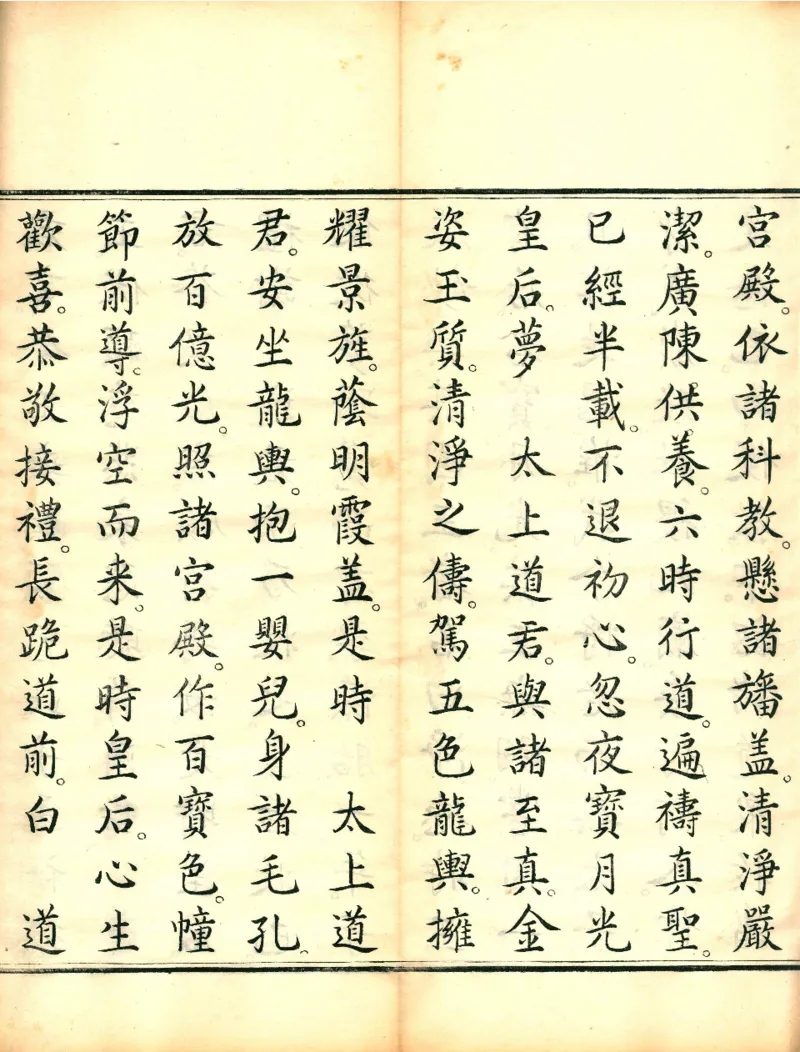 宫殿。依諸科教。懸諸旛盖。清淨嚴
潔。廣陳供養。六時行道。遍禱真聖。
已經半載。不退初心。忽夜寶月光
皇后。夢　太上道君。與諸至真。金
姿玉質。清淨之儔。駕五色龍輿。擁
耀景旌。蔭明霞盖。是時　太上道
君。安坐龍輿。抱一嬰兒。身諸毛孔。
放百億光。照諸宫殿。作百寶色。幢
節前導。浮空而来。是時皇后。心生
歡喜。恭敬接禮。長跪道前。白　道